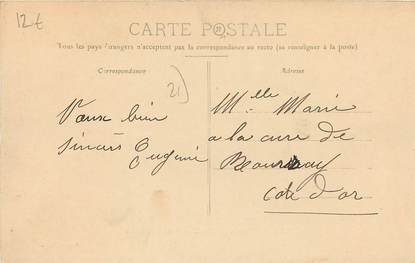 12 t
CARTE POSTALE
Tous les pays étrangers n'acceptent pas la correspondance au recto (se renseigner à la poste)
Correspondance
Adresse
21)
Vœux bien
sincères Eugénie
Mlle Marie
a la cure de
Cote d'or